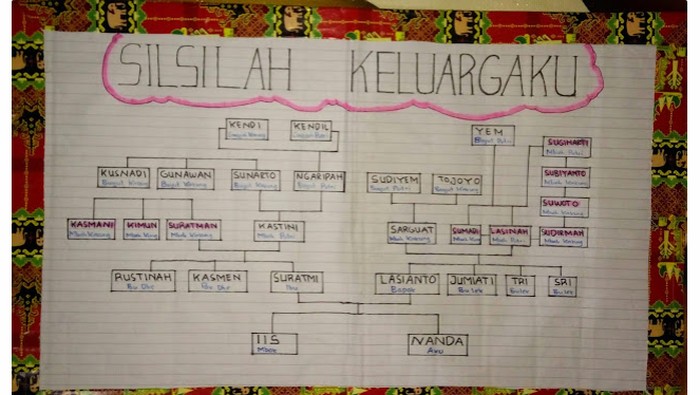 SILSILAH KELUARGAKU
KENDI
KENDIL
YEM
Buyut Putri
SUGIHARTI
Mbah Putri
KUSNADI
Buyut Kakung
GUNAWAN
Buyut Kakung
SUNARTO
Buyut Kakung
NGARIPAH
Buyut Putri
SUDIYEM
Buyut Putri
TOJOYO
Buyut Kakung
SUBIYANTO
Mbah Kakung
SUWOTO
Mbah Kakung
KASMANI
Mbah Kakung
KIMUN
Mbah
SURATMAN
Mbah Kakung
KASTINI
Mbah Putri
SARGUAT
Mbah Kakung
SUMADI
Mbah
LASINAH
Mbah Putri
SUDIRMAN
Mbah Kakung
RUSTINAH
Bu Dhe
KASMEN
SURATMI
Ibu
LASIANTO
Bapak
JUMIATI
Bu Lek
TRI
Bu Lek
SRI
Bu Lek
IIS
NANDA
Ayu